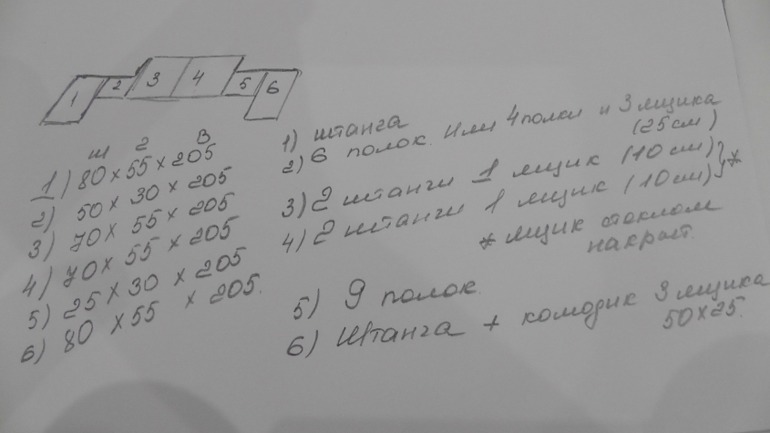 1 2 3 4 5 6
ш г В
1) 80 х 55 х 205
2) 50 х 30 х 205
3) 70 х 55 х 205
4) 70 х 55 х 205
5) 25 х 30 х 205
6) 80 х 55 х 205.
1) штанга
2) 6 полок. Или 4 полки и 3 ящика
(25 см)
3) 2 штанги 1 ящик (10 см)
4) 2 штанги 1 ящик (10 см) } *
* ящик стеклом
накрыт.
5) 9 полок.
6) Штанга + комодик 3 ящика
50х25.